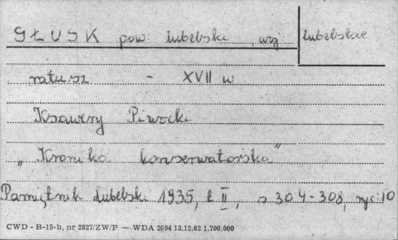 GŁUSK pow. lubelski, woj. lubelskie
ratusz - XVII w
Ksawery Piwocki
„Kronika konserwatorska"
Pamiętnik Lubelski 1935, t. II, s 304-308, ryc. 10
CWD - B-15-b, nr 2827/ZW/P — WDA 2694 13.12.62 1.700.000